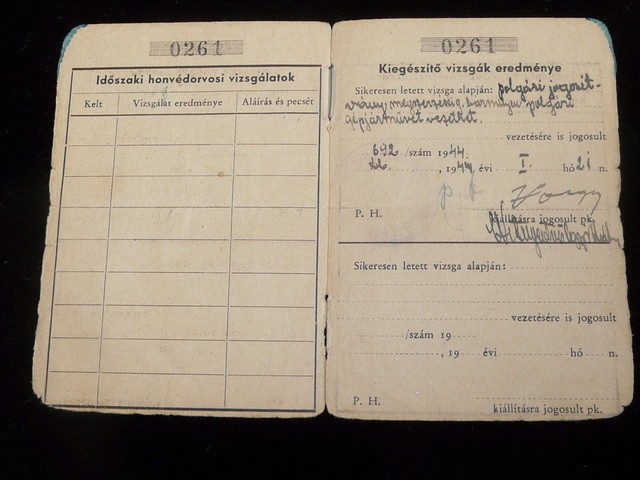 0261
Időszaki honvédorvosi vizsgálatok
Kelt
Vizsgálat eredménye
Aláírás és pecsét
0261
Kiegészítő vizsgák eredménye
Sikeresen letett vizsga alapján: polgári
polgári
gépjárművét
vezetésére is jogosult
692 /szám 1944.
, 1944 évi I. hó 21 n.
P. H.
kiállításra jogosult pk.
Sikeresen letett vizsga alapján:
vezetésére is jogosult
/szám 19
, 19 évi hó n.
P. H.
kiállításra jogosult pk.